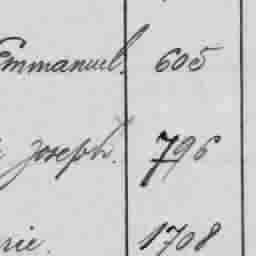 Emmanuel. 605
Joseph. 796
rie. 1708